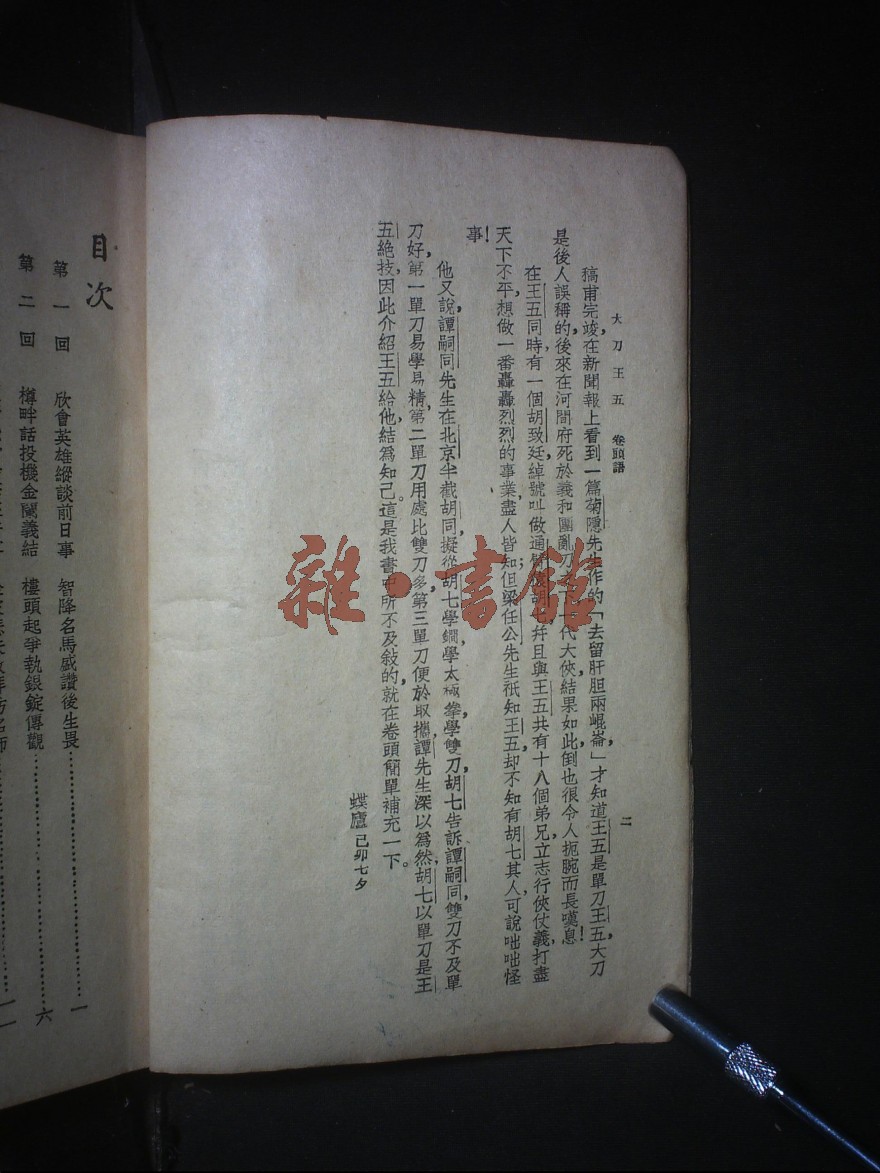 大刀王五　卷頭語
二
稿甫完竣,在新聞報上看到一篇菊隱先生作的「去留肝胆兩崐崙,」才知道王五是單刀王五,大刀
是後人誤稱的,後來在河間府死於義和團亂刀之下一代大俠,結果如此,倒也很令人扼腕而長嘆息!
在王五同時,有一個胡致廷,綽號叫做通臂猿胡七,幷且與王五共有十八個弟兄,立志行俠仗義,打盡
天下不平,想做一番轟轟烈烈的事業,盡人皆知;但梁任公先生祇知王五,却不知有胡七其人,可說咄咄怪
事!
他又說,譚嗣同先生在北京半截胡同,擬從胡七學鐧,學太極拳,學雙刀,胡七告訴譚嗣同,雙刀不及單
刀好,第一單刀易學易精,第二單刀用處比雙刀多,第三單刀便於取攜,譚先生深以為然,胡七以單刀是王
五絕技,因此介紹王五給他,結爲知己。這是我書中所不及敍的,就在卷頭簡單補充一下。
蝶廬 己卯七夕
目次
第一回　欣會英雄縱談前日事　智降名馬感讚後生畏…………一
第二回　樽畔話投機金闌義結　樓頭起爭執銀錠傳觀…………六
雜·書館